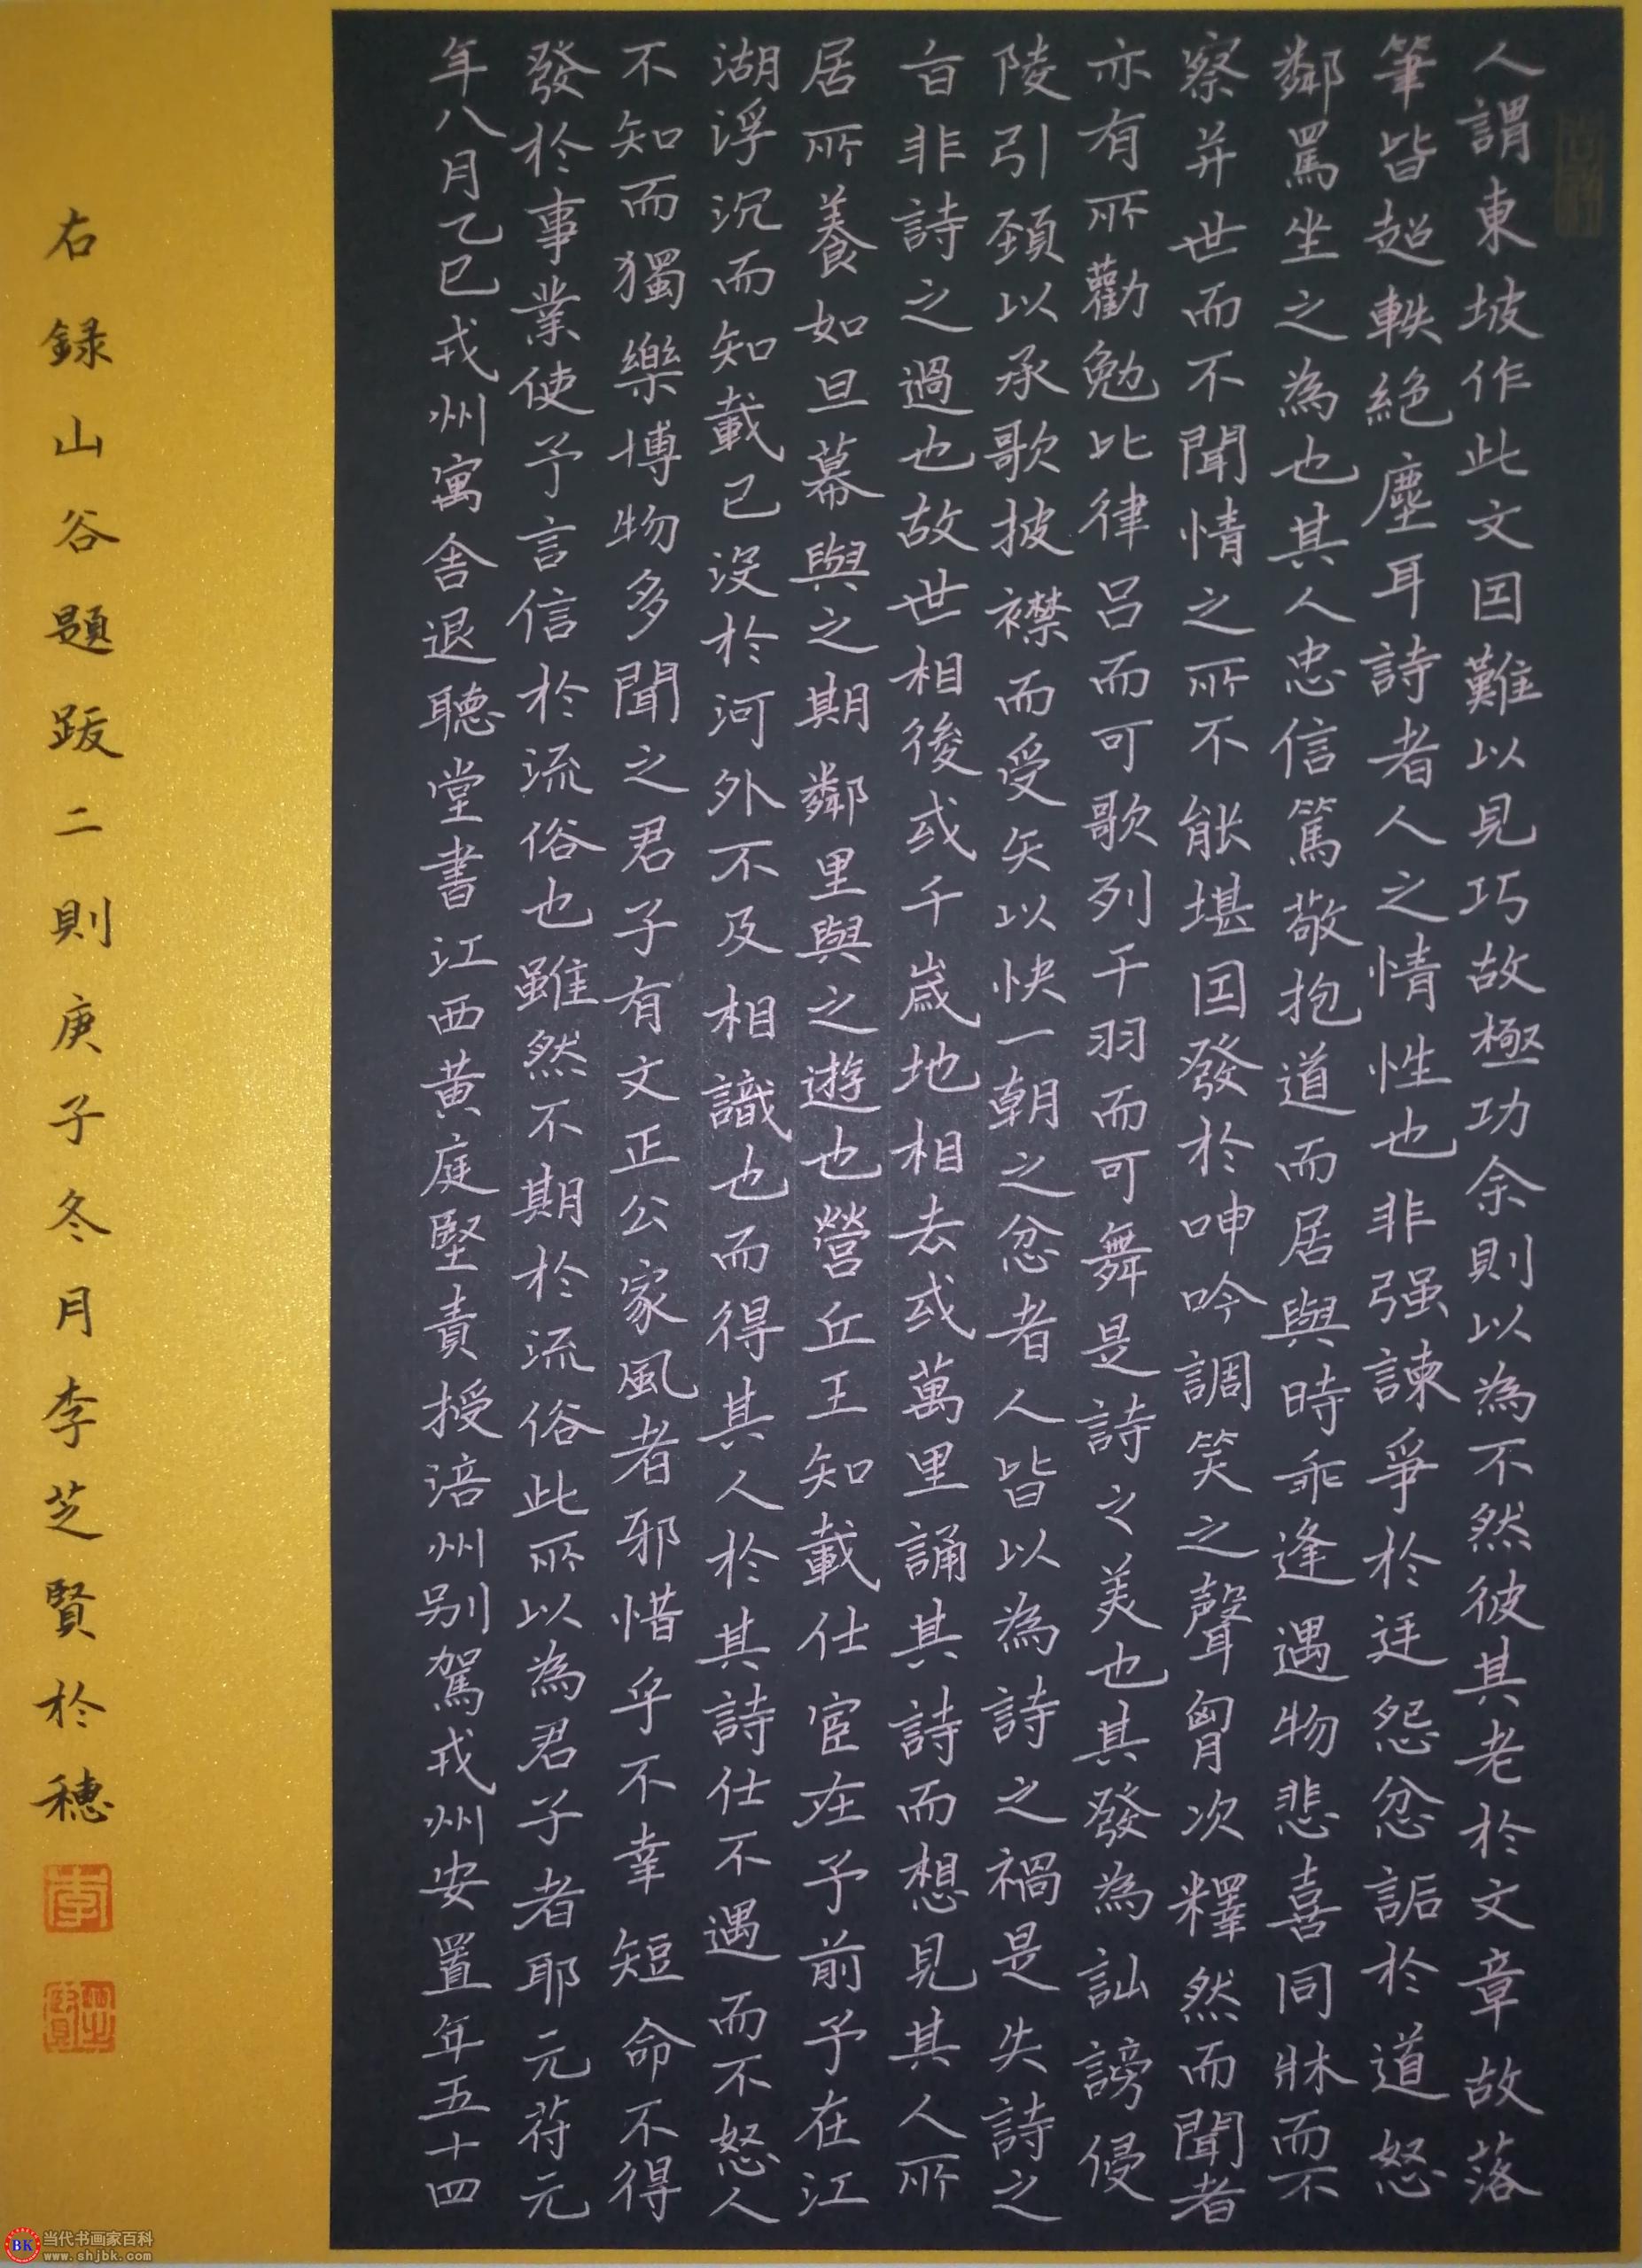 人謂東坡作此文因難以見巧故極功余則以為不然彼其老於文章故落
筆皆超軼絕塵耳詩者人之情性也非强諫爭於廷怨忿詬於道怒
鄰罵坐之為也其人忠信篤敬抱道而居與時乖逢遇物悲喜同牀而不
察并世而不聞情之所不能堪因發於呻吟調笑之聲胷次釋然而聞者
亦有所勸勉比律呂而可歌列干羽而可舞是詩之美也其發為訕謗侵
陵引頸以承歌披襟而受矢以快一朝之忿者人皆以為詩之禍是失詩之
旨非詩之過也故世相後或千歲地相去或萬里誦其詩而想見其人所
居所養如旦暮與之期鄰里與之遊也營丘王知載仕宦在予前予在江
湖浮沉而知載已沒於河外不及相識也而得其人於其詩仕不遇而不怒人
不知而獨樂博物多聞之君子有文正公家風者邪惜乎不幸短命不得
發於事業使予言信於流俗也雖然不期於流俗此所以為君子者耶元符元
年八月乙巳戎州寓舍退聽堂書江西黃庭堅責授涪州别駕戎州安置年五十四
右録山谷題跋二則庚子冬月李芝賢於穗
李
芝賢
当代书画家百科
www.shjbk.com
BK